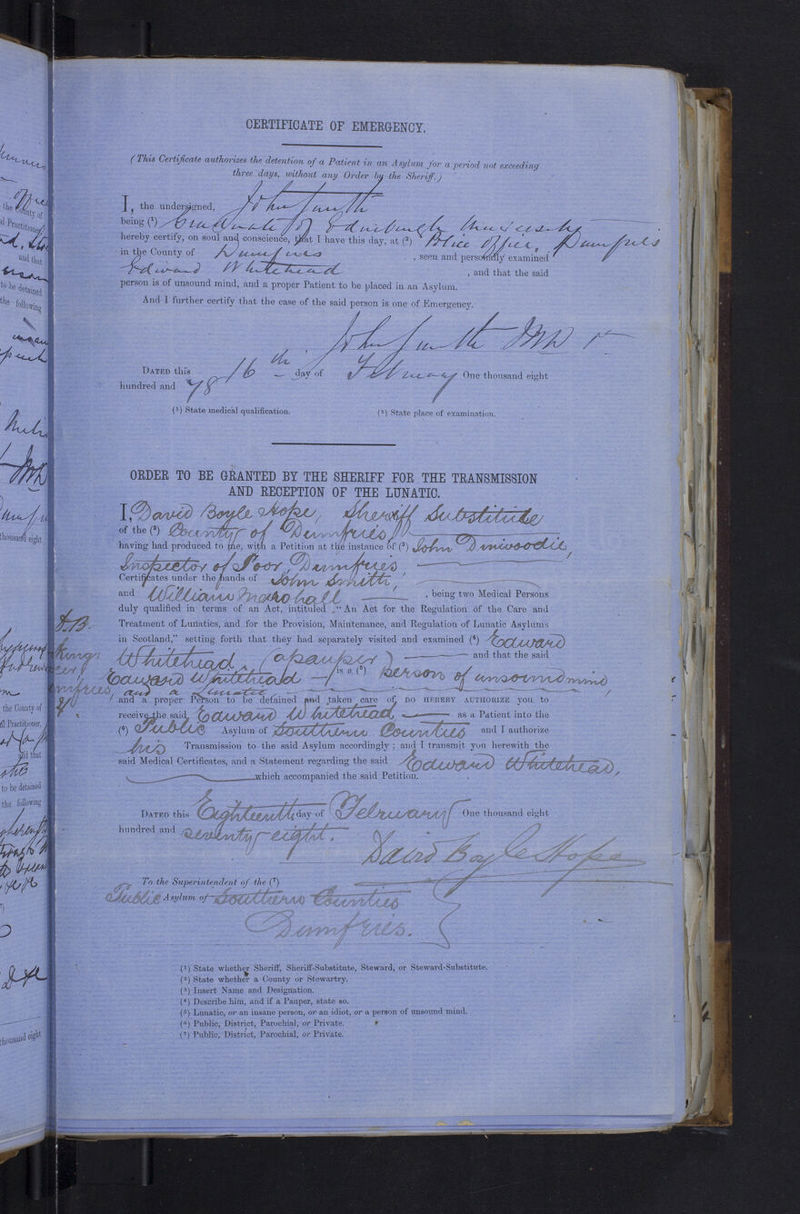 CERTIFICATE OF EMERGENCY.
(This Certificate authorizes the detention of a Patient in an Asylum for a period not exceeding
three days, without any Order by the Sheriff.)
I, the undersigned, John Smith
being (¹) Graduate of Edinburgh University
hereby certify, on soul and conscience, that I have this day, at (²) Police Office, Dumfries
in the County of Dumfries , seen and personally examined
Edward Whitehead , and that the said
person is of unsound mind, and a proper Patient to be placed in an Asylum.
And I further certify that the case of the said person is one of Emergency.
John Smith MD
DATED this 16th day of February One thousand eight
hundred and 78
(¹) State medical qualification. (²) State place of examination.
ORDER TO BE GRANTED BY THE SHERIFF FOR THE TRANSMISSION
AND RECEPTION OF THE LUNATIC.
I, David Boyle Hope, Sheriff Substitute
of the (²) County of Dumfries
having had produced to me, with a Petition at the instance of (³) John Dinwoodie,
Inspector of Poor, Dumfries
Certificates under the hands of John Smith,
and William Marshall , being two Medical Persons
duly qualified in terms of an Act, intituled "An Act for the Regulation of the Care and
Treatment of Lunatics, and for the Provision, Maintenance, and Regulation of Lunatic Asylums
in Scotland," setting forth that they had separately visited and examined (⁴) Edward
Whitehead, (a pauper) and that the said
Edward Whitehead is a (⁵) person of unsound mind,
and a Lunatic
and a proper Person to be detained and taken care of, DO HEREBY AUTHORIZE you to
receive the said Edward Whitehead, as a Patient into the
(⁶) Public Asylum of Southern Counties and I authorize
his Transmission to the said Asylum accordingly; and I transmit you herewith the
said Medical Certificates, and a Statement regarding the said Edward Whitehead,
which accompanied the said Petition.
DATED this Eighteenth day of February One thousand eight
hundred and seventy-eight.
David Boyle Hope
To the Superintendent of the (⁷)
Public Asylum of Southern Counties
Dumfries.
(¹) State whether Sheriff, Sheriff-Substitute, Steward, or Steward-Substitute.
(²) State whether a County or Stewartry.
(³) Insert Name and Designation.
(⁴) Describe him, and if a Pauper, state so.
(⁵) Lunatic, or an insane person, or an idiot, or a person of unsound mind.
(⁶) Public, District, Parochial, or Private.
(⁷) Public, District, Parochial, or Private.
the County of
and that
to be detained
the following
thousand eight
the County of
al Practitioner,
and that
to be detained
the following
thousand eight